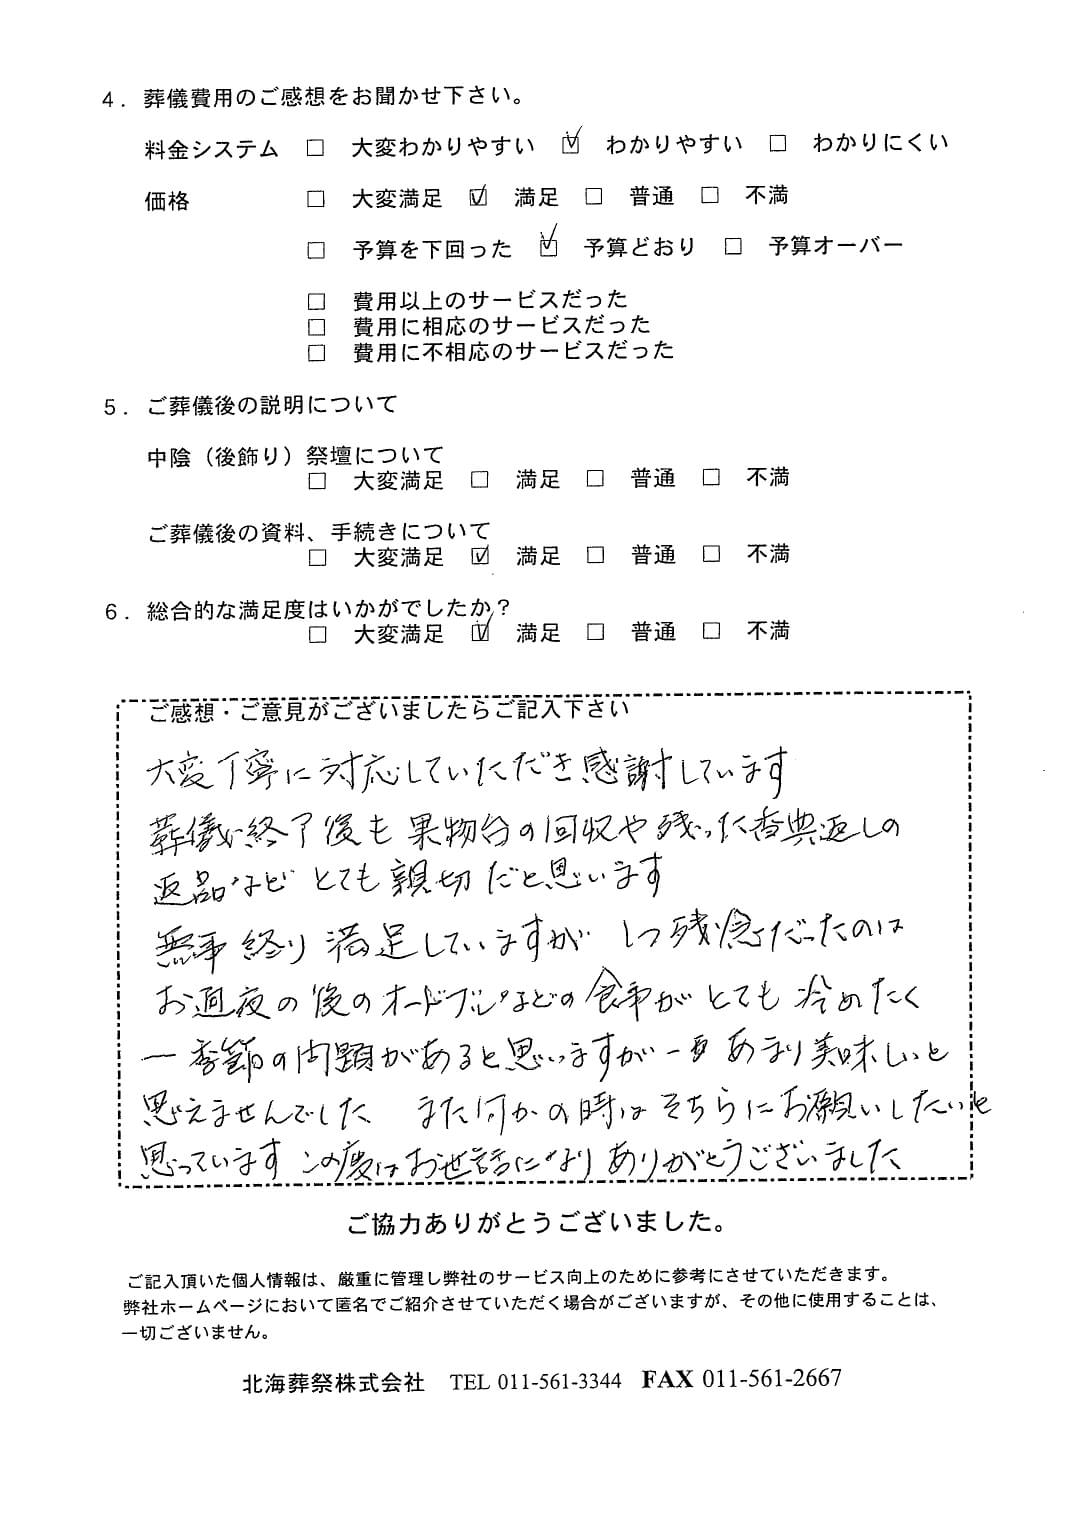 4．葬儀費用のご感想をお聞かせ下さい。
料金システム □ 大変わかりやすい ☑ わかりやすい □ わかりにくい
価格 □ 大変満足 ☑ 満足 □ 普通 □ 不満
□ 予算を下回った ☑ 予算どおり □ 予算オーバー
□ 費用以上のサービスだった
□ 費用に相応のサービスだった
□ 費用に不相応のサービスだった
5．ご葬儀後の説明について
中陰（後飾り）祭壇について
□ 大変満足 □ 満足 □ 普通 □ 不満
ご葬儀後の資料、手続きについて
□ 大変満足 ☑ 満足 □ 普通 □ 不満
6．総合的な満足度はいかがでしたか？
□ 大変満足 ☑ 満足 □ 普通 □ 不満
ご感想・ご意見がございましたらご記入下さい
大変丁寧に対応していただき感謝しています
葬儀終了後も果物台の回収や残った香典返しの
返品などとても親切だと思います
無事終り満足していますが 1つ残念だったのは
お通夜の後のオードブルなどの食事がとても冷めたく
季節の問題があると思いますが あまり美味しいと
思えませんでした また何かの時はそちらにお願いしたいと
思っています この度はお世話になりありがとうございました
ご協力ありがとうございました。
ご記入頂いた個人情報は、厳重に管理し弊社のサービス向上のために参考にさせていただきます。
弊社ホームページにおいて匿名でご紹介させていただく場合がございますが、その他に使用することは、
一切ございません。
北海葬祭株式会社 TEL 011-561-3344 FAX 011-561-2667